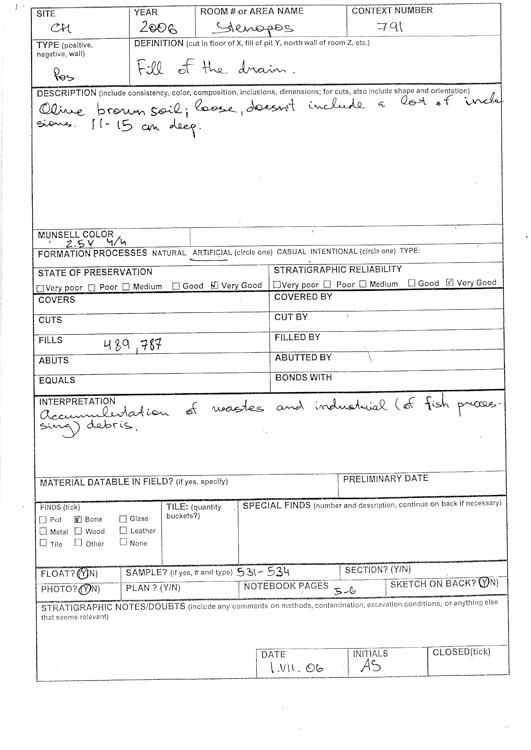 SITE YEAR ROOM # or AREA NAME CONTEXT NUMBER
CH 2006 Stenopos 791
TYPE (positive, negative, wall) DEFINITION (cut in floor of X, fill of pit Y, north wall of room Z, etc.)
Pos Fill of the drain.
DESCRIPTION (include consistency, color, composition, inclusions, dimensions; for cuts, also include shape and orientation)
Olive brown soil; loose, doesn't include a lot of inclu
sions. 11-15 cm deep.
MUNSELL COLOR
2.5Y 4/4
FORMATION PROCESSES NATURAL ARTIFICIAL (circle one) CASUAL INTENTIONAL (circle one) TYPE:
STATE OF PRESERVATION STRATIGRAPHIC RELIABILITY
☐ Very poor ☐ Poor ☐ Medium ☐ Good ☑ Very Good ☐ Very poor ☐ Poor ☐ Medium ☐ Good ☑ Very Good
COVERS COVERED BY
CUTS CUT BY
FILLS 489, 787 FILLED BY
ABUTS ABUTTED BY
EQUALS BONDS WITH
INTERPRETATION
Accummulentation of wastes and industrial (of fish proces-
sing) debris.
MATERIAL DATABLE IN FIELD? (if yes, specify) PRELIMINARY DATE
FINDS (tick) TILE: (quantity buckets?) SPECIAL FINDS (number and description, continue on back if necessary)
☐ Pot ☑ Bone ☐ Glass
☐ Metal ☐ Wood ☐ Leather
☐ Tile ☐ Other ☐ None
FLOAT? (Y/N) SAMPLE? (if yes, # and type) 531-534 SECTION? (Y/N)
PHOTO? (Y/N) PLAN? (Y/N) NOTEBOOK PAGES 5-6 SKETCH ON BACK? (Y/N)
STRATIGRAPHIC NOTES/DOUBTS (include any comments on methods, contamination, excavation conditions, or anything else
that seems relevant)
DATE INITIALS CLOSED(tick)
1.VII.06 AS